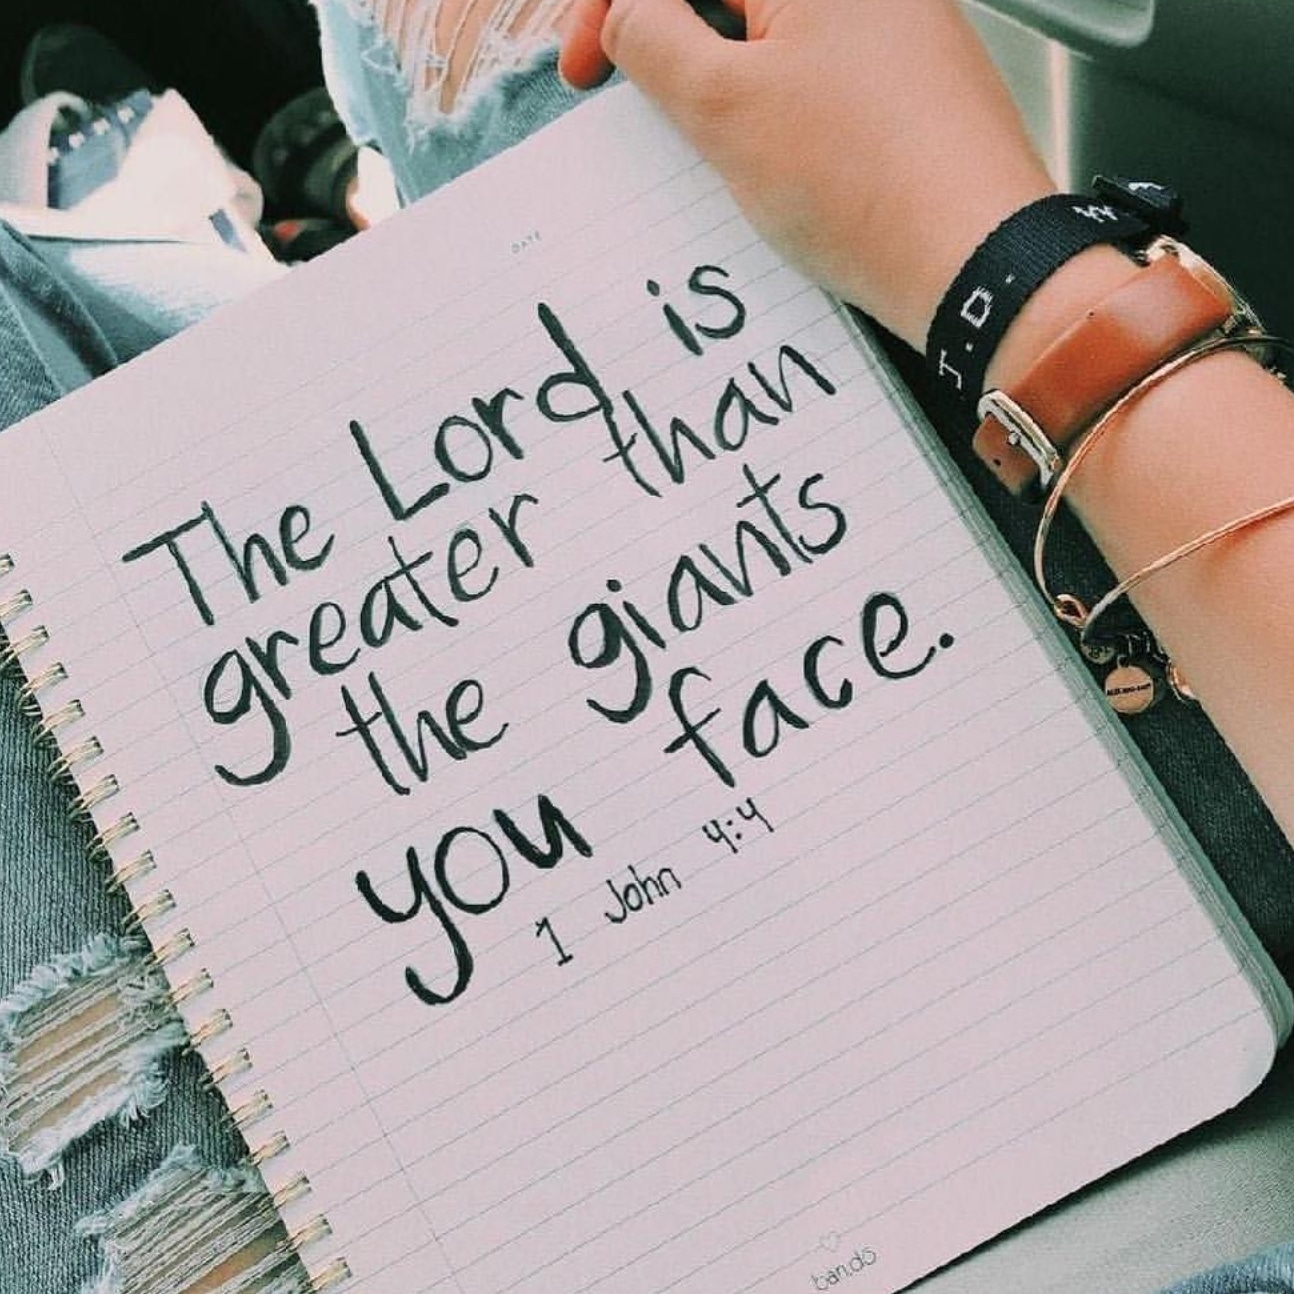 DATE
The Lord is
greater than
the giants
you face.
1 John 4:4
ban.do
J.D.